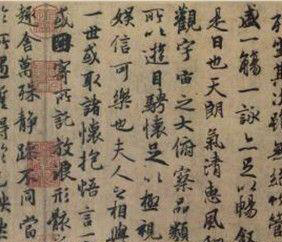 坐其次雖無絲竹管
盛一觴一詠亦足以暢敘
是日也天朗氣清惠風
觀宇宙之大俯察品類
所以遊目騁懷足以極視
娛信可樂也夫人之相與
一世或取諸懷抱悟言一
或因寄所託放浪形骸
趣舍萬殊靜躁不同當
於所遇蹔得於